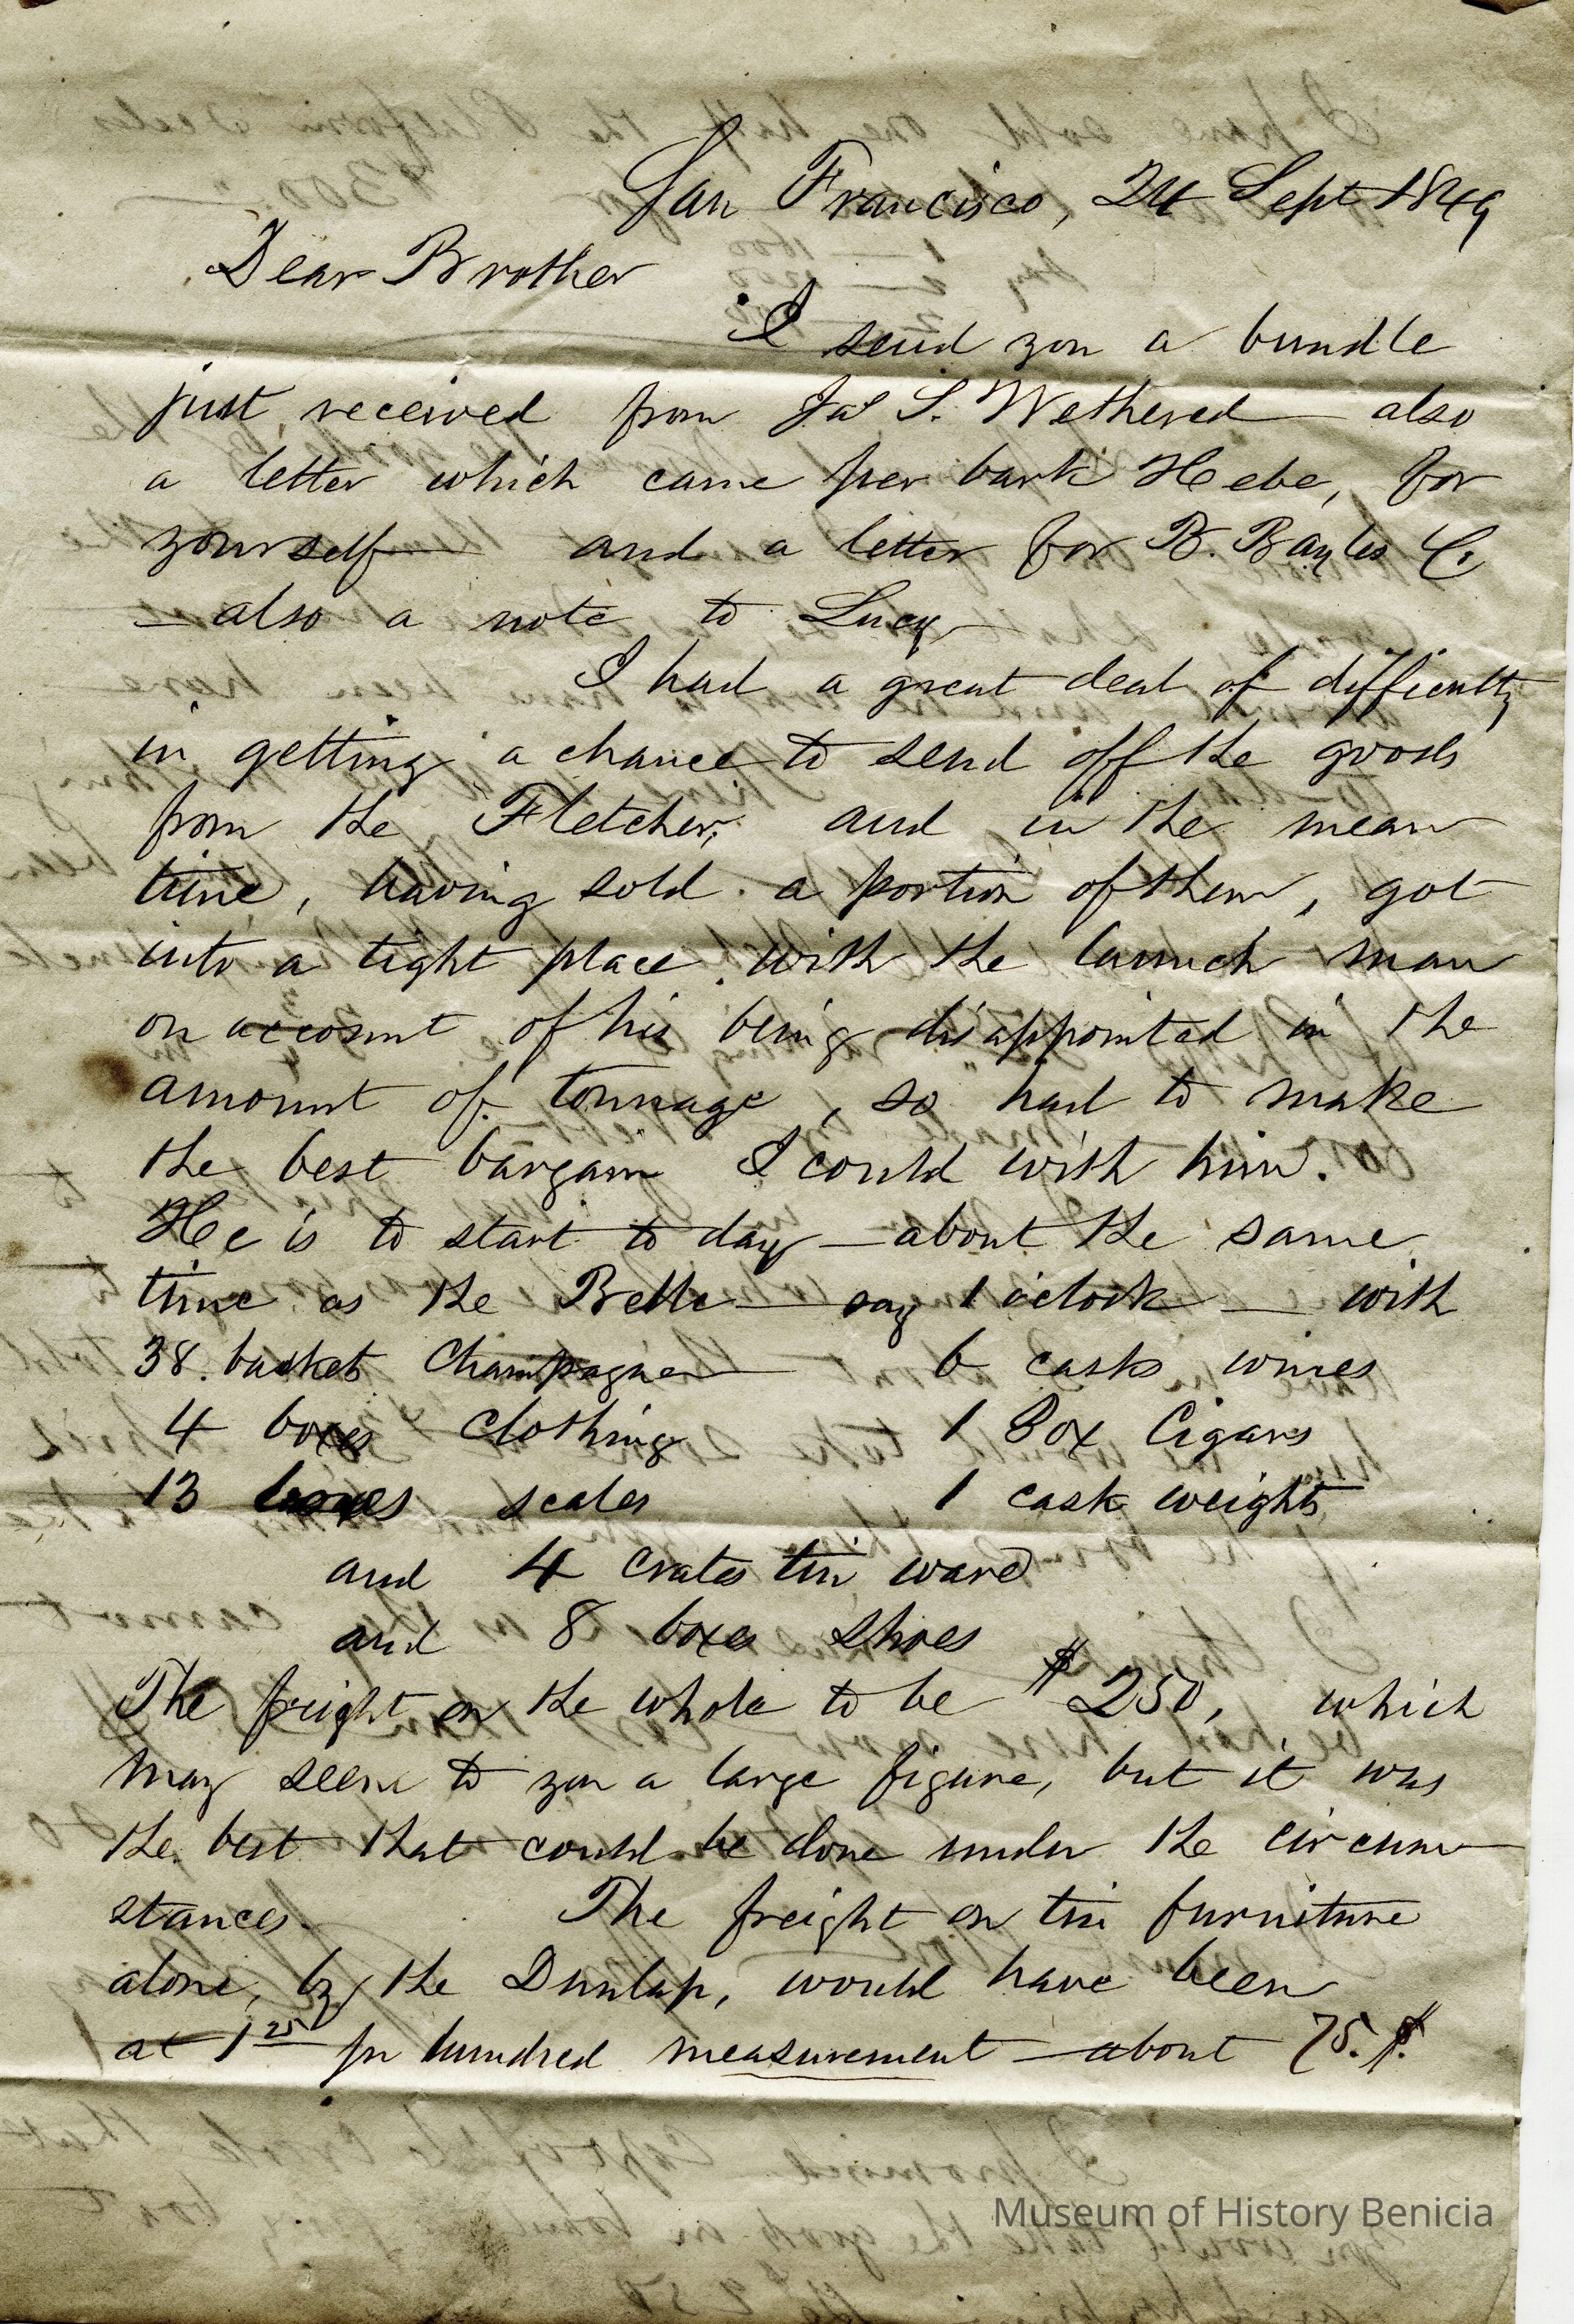 San Francisco, 24 Sept 1849
Dear Brother
I send you a bundle
just received from Jas S. Wethered also
a letter which came per bark Hebe, for
yourself and a letter for B. Bayles
— also a note to Lucy
I had a great deal of difficulty
in getting a chance to send off the goods
from the Fletcher, and in the mean
time, having sold a portion of them, got
into a tight place with the launch man
on account of his being disappointed in the
amount of tonnage, so had to make
the best bargain I could with him.
He is to start to day — about the same
time as the Belle — say 1 o'clock — with
38 basket Champagne 6 casks wines
4 boxes clothing 1 Box Cigars
13 boxes scales 1 cask weights
and 4 crates tin ware
and 8 boxes shoes
The freight on the whole to be $250, which
may seem to you a large figure, but it was
the best that could be done under the circum
stances. The freight on the furniture
alone, by the Dunlap, would have been
at 1 25 pr hundred measurement — about 75.$.
Museum of History Benicia